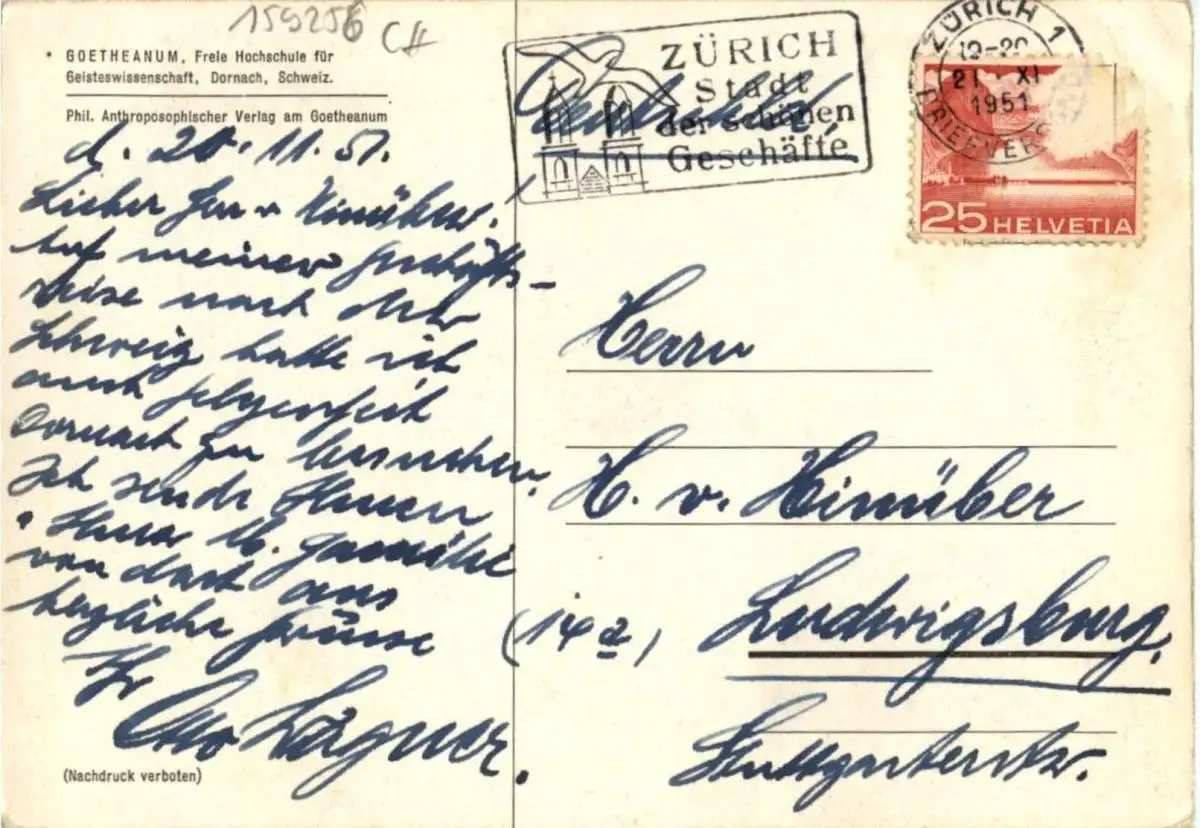 159256 CH
GOETHEANUM, Freie Hochschule für
Geisteswissenschaft, Dornach, Schweiz.
Phil. Anthroposophischer Verlag am Goetheanum
d. 20.11.51.
Lieber Herr v. Hinüber!
Auf meiner Geschäfts-
reise nach der
Schweiz hatte ich
auch Gelegenheit
Dornach zu besuchen.
Ich sende Ihnen
Ihrer lb. Familie
von dort aus
herzliche Grüsse
Ihr
Otto
(Nachdruck verboten)
ZÜRICH
Stadt
der schönen
Geschäfte
ZÜRICH 1
12-20
21. XI
1951
BRIEFVERS
25 HELVETIA
Herrn
H. v. Hinüber
(14a) Ludwigsburg.
Stuttgarterstr.